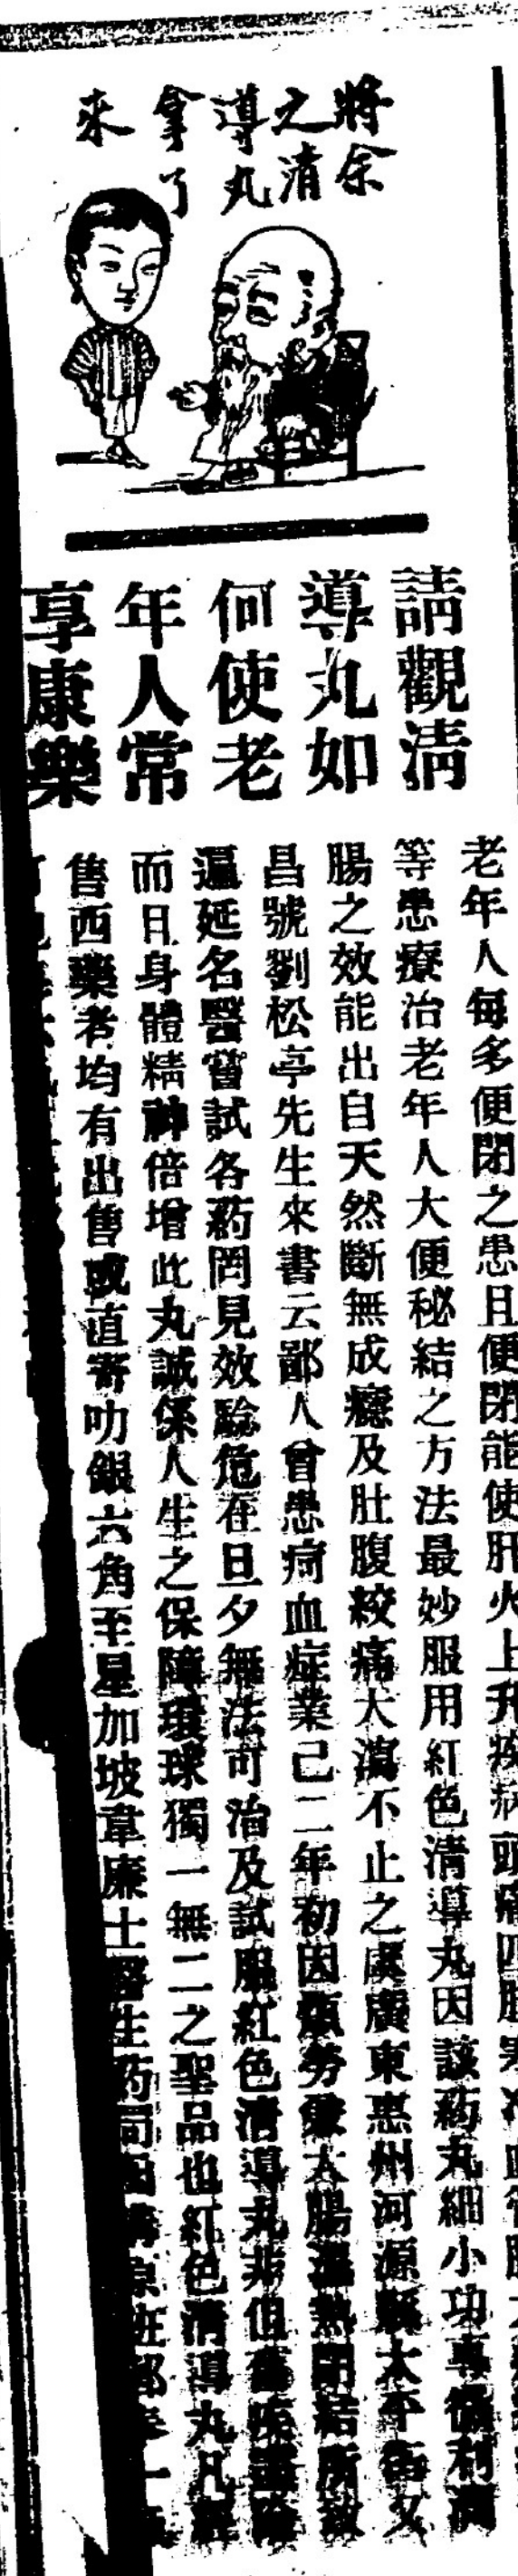 將余
之清
導丸
拿了
來
請觀清
導丸如
何使老
年人常
享康樂
老年人每多便閉之患且便閉能使肝火上升疾病頭痛四肢寒冷血管
等患療治老年人大便秘結之方法最妙服用紅色清導丸因該葯丸細小功專微利潤
腸之效能出自天然斷無成癮及肚腹絞痛大瀉不止之虞廣東惠州河源縣太平街又
昌號劉松亭先生來書云鄙人曾患痾血症業已二年初因煩勞兼大腸濕熱閉結所致
遍延名醫嘗試各葯罔見效驗危在旦夕無法可治及試服紅色清導丸非但舊疾盡除
而且身體精神倍增此丸誠係人生之保障環球獨一無二之聖品也紅色清導丸凡經
售西藥者均有出售或直寄叻銀六角至星加坡韋廉士醫生葯局